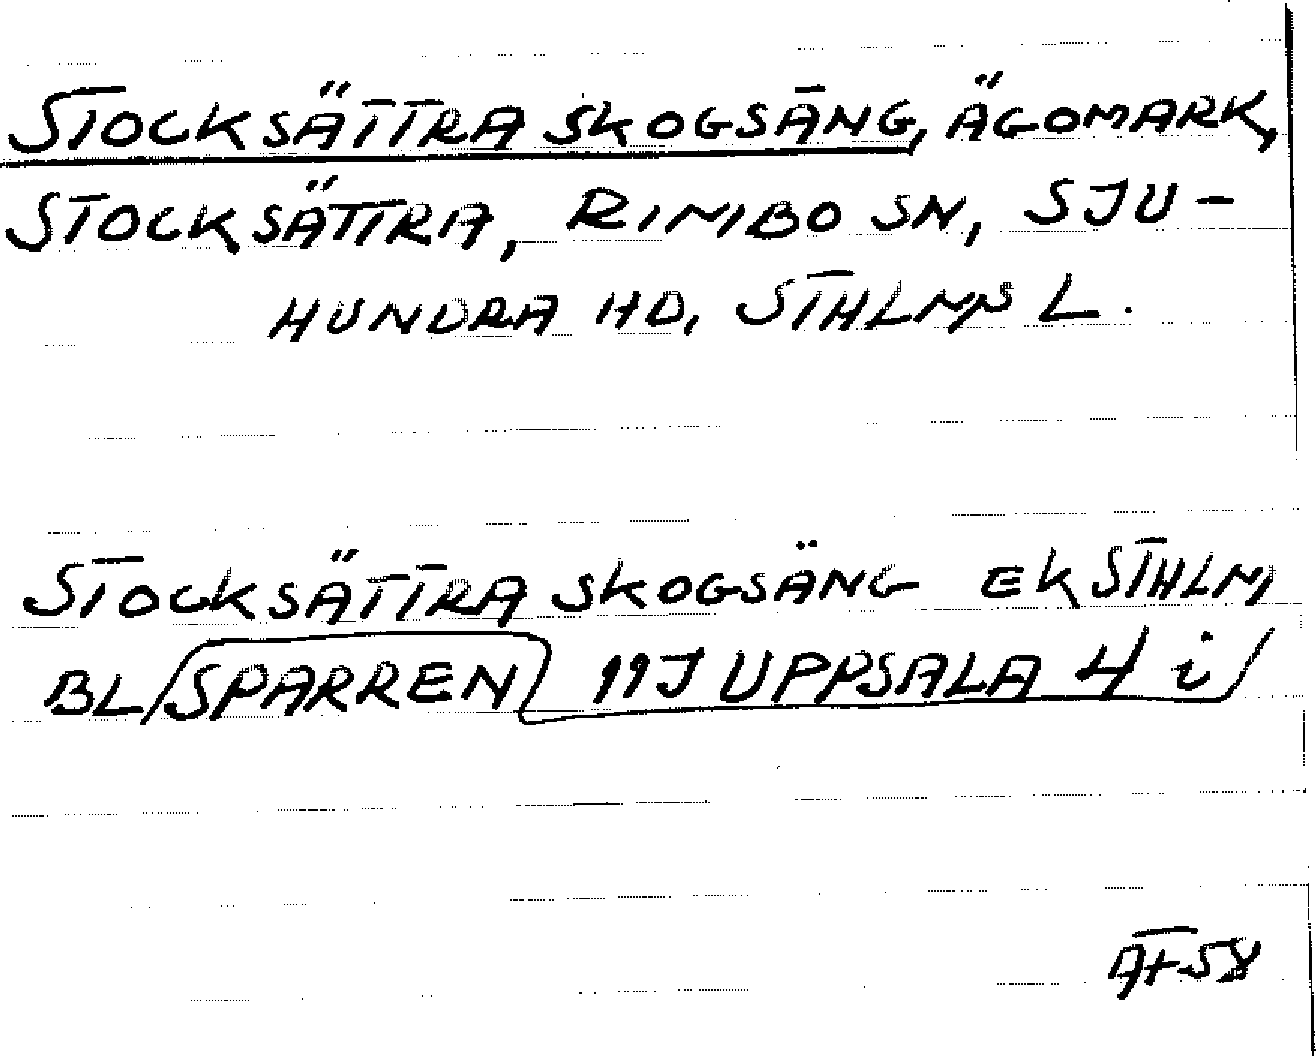 STOCKSÄTTRA SKOGSÄNG, ÄGOMARK,
STOCKSÄTTRA, RIMBO SN, SJU-
HUNDRA HD, STHLMS L.
STOCKSÄTTRA SKOGSÄNG EK STHLM
BL/SPARREN 11J UPPSALA 4 i/